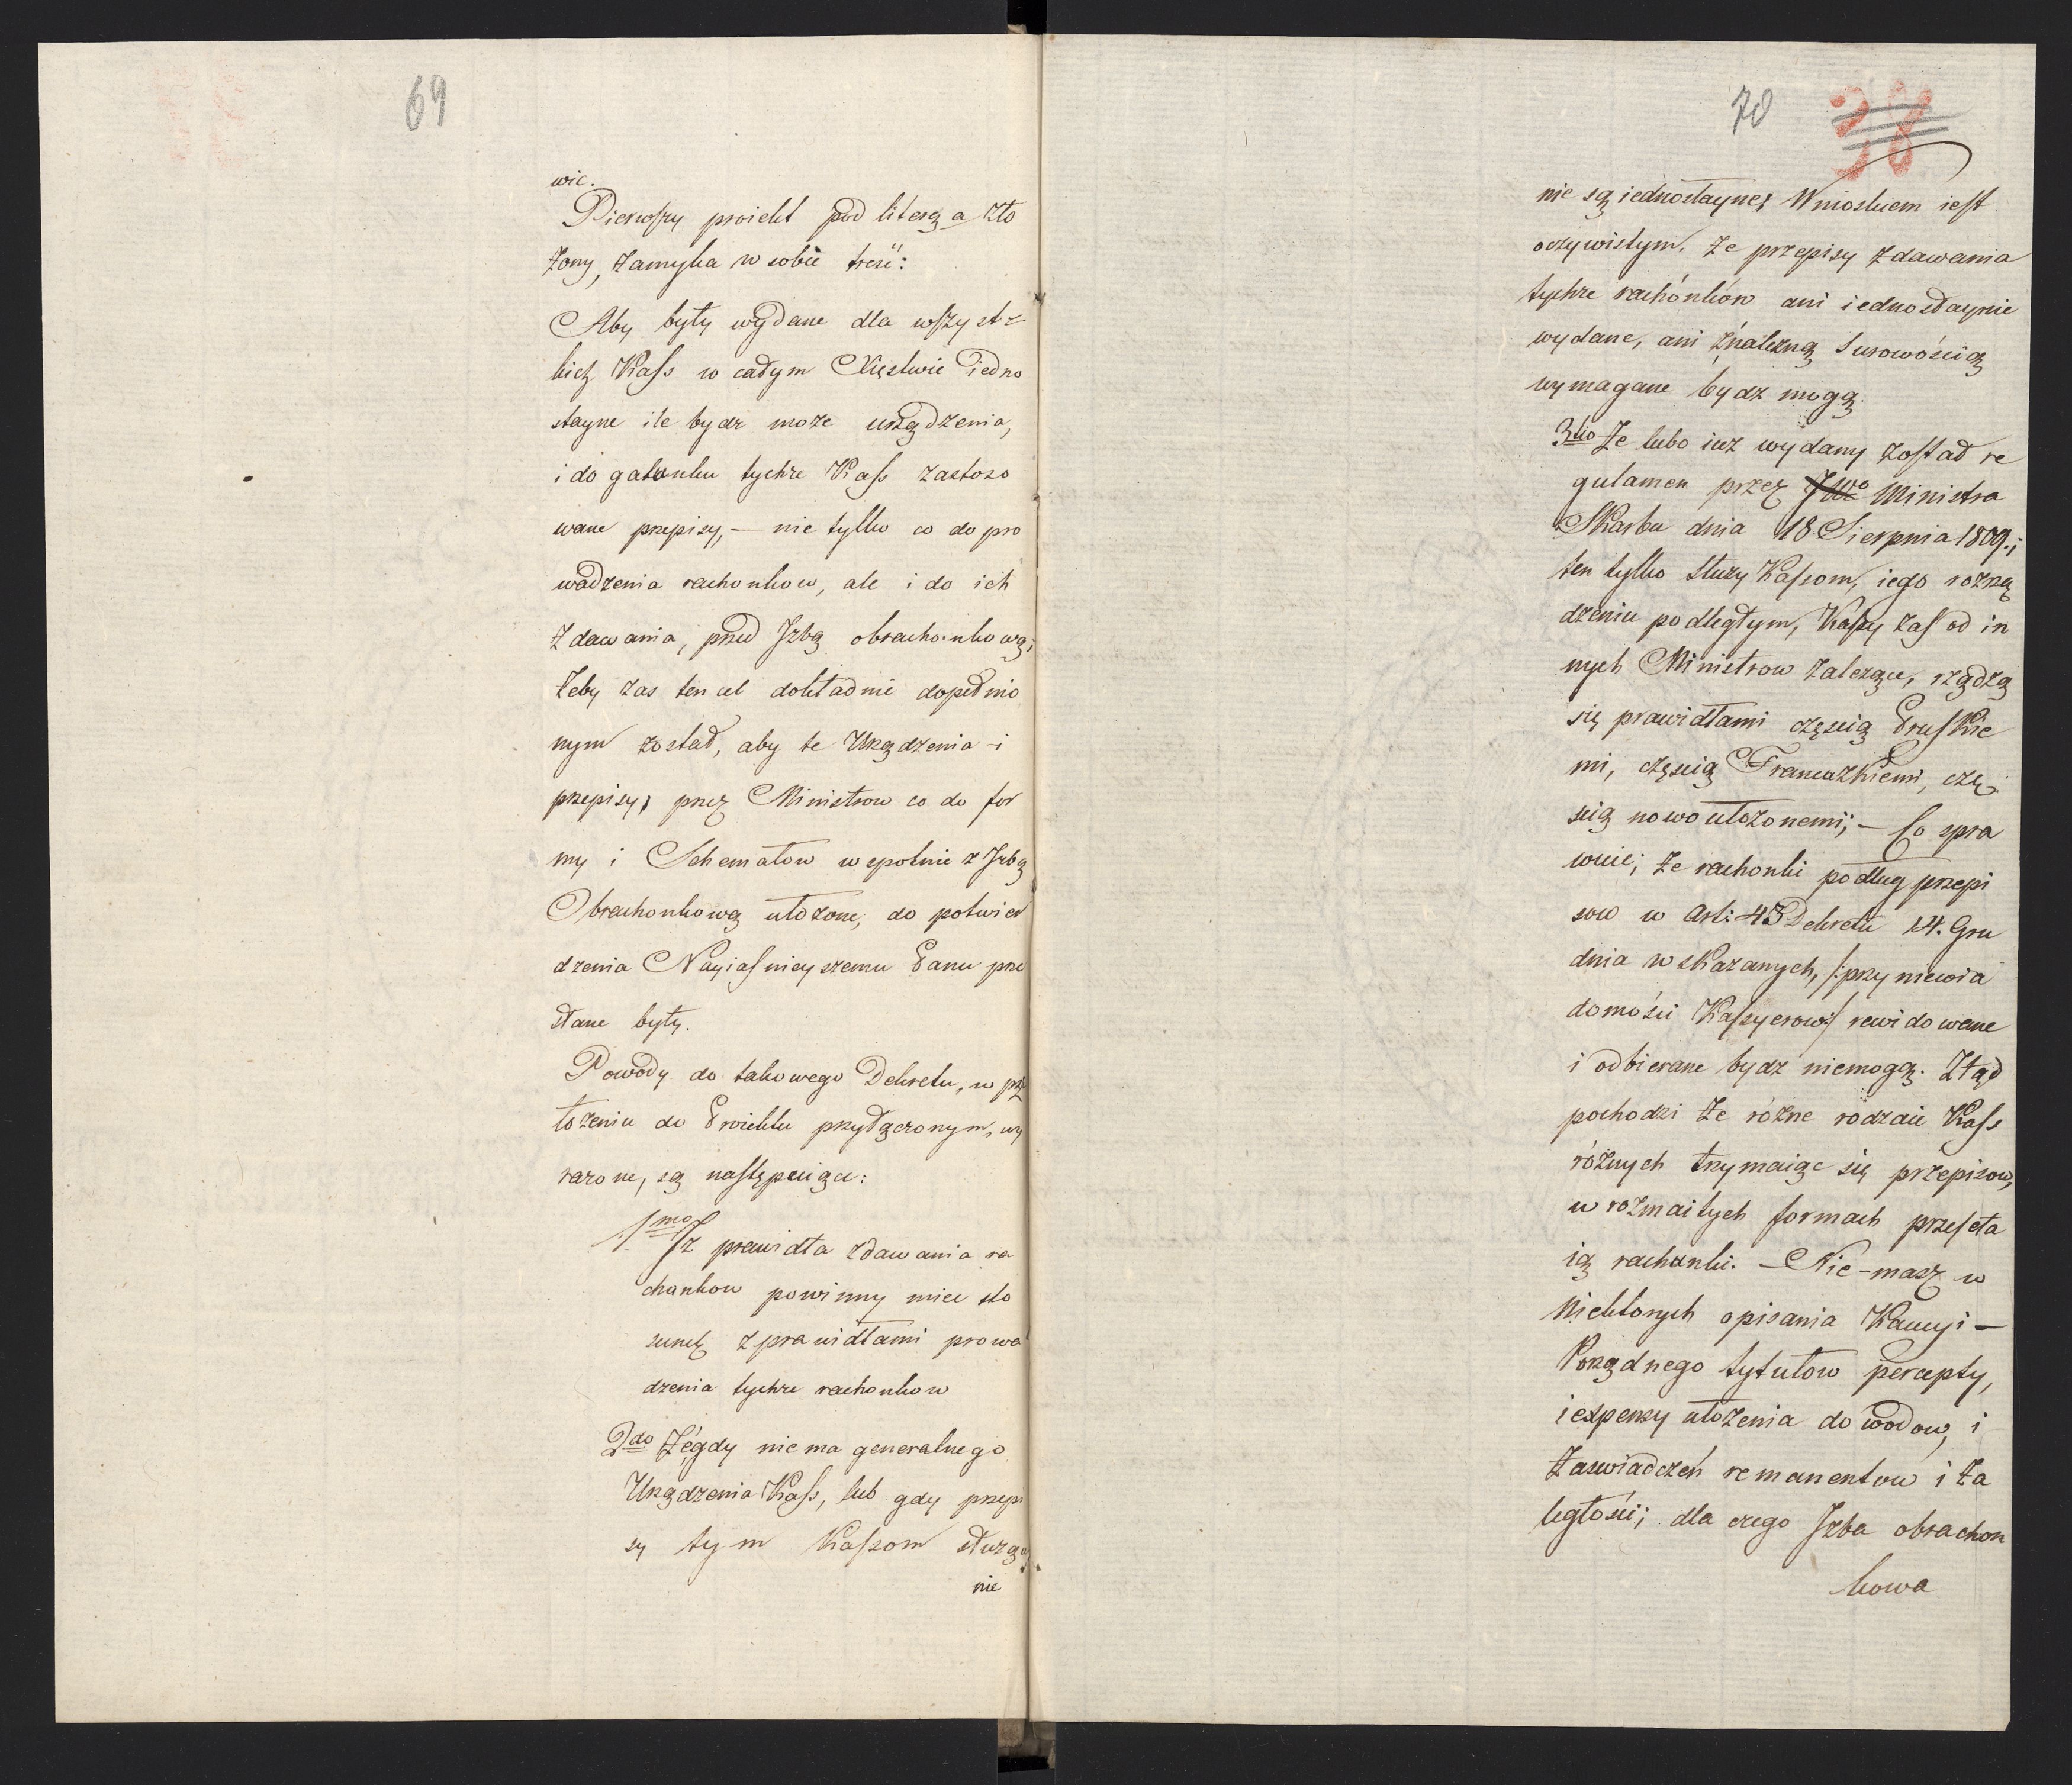 69
wic.
Pierwszy proiekt pod literą a zło
żony, zamyka w sobie treść:
Aby były wydane dla wszyst-
kich Kass w całym Xięstwie iedno
stayne ile bydz może urządzenia,
i do gatunku tychże Kass zastoso
wane przepisy, — nie tylko co do pro
wadzenia rachonkow, ale i do ich
zdawania, przed Jzbą obrachonkową;
żeby zas ten cel dokładnie dopełnio
nym został, aby te Urządzenia i
przepisy, przez Ministrow co do for
my i Schematow wspolnie z Jzbą
Obrachonkową ułożone, do potwier
dzenia Nayiasnieyszemu Panu prze
słane były.
Powody do takowego Dekretu, w prze
łożeniu do Proiektu przyłączonym, wy
rażone, są następuiące:
1mo Jż prawidła zdawania ra
chunkow powinny mieć sto
sunek z prawidłami prowa
dzenia tychże rachonkow
2do Że gdy nie ma generalnego
Urządzenia Kass, lub gdy przepi
sy tym Kassom służące
nie
70
38
nie są iednostayne; Wnioskiem iest
oczywistym, że przepisy zdawania
tychże rachónków ani iednostaynie
wydane, ani znależną surowością
wymagane bydz mogą.
3tio Że lubo iuz wydany został re
gulamen przez JWo Ministra
Skarbu dnia 18 Sierpnia 1809.;
ten tylko służy Kassom, iego rozrzą
dzeniu podległym, Kassy zaś od in
nych Ministrow zależące, rządzą
się prawidłami częscią Pruskie
mi, częscią Francuzkiemi, czę
scią nowo ułożonemi; — Co spra
wuie; że rachonki podług przepi
sow w Art: 43 Dekretu 14. Gru
dnia wskazanych, /:przy niewia
domości Kassyerow:/ rewidowane
i odbierane bydz niemogą. Ztąd
pochodzi że rożne rodzaie Kass
różnych trzymaiąc się przepisow,
w rozmaitych formach przesyła
ią rachunki. — Nie-masz w
niektorych opisania Kaucyi —
Porządnego tytułow percepty,
i expensy ułożenia dowodow, i
zaswiadczeń remanentow i za
ległości; dla czego Jzba obrachon
kowa